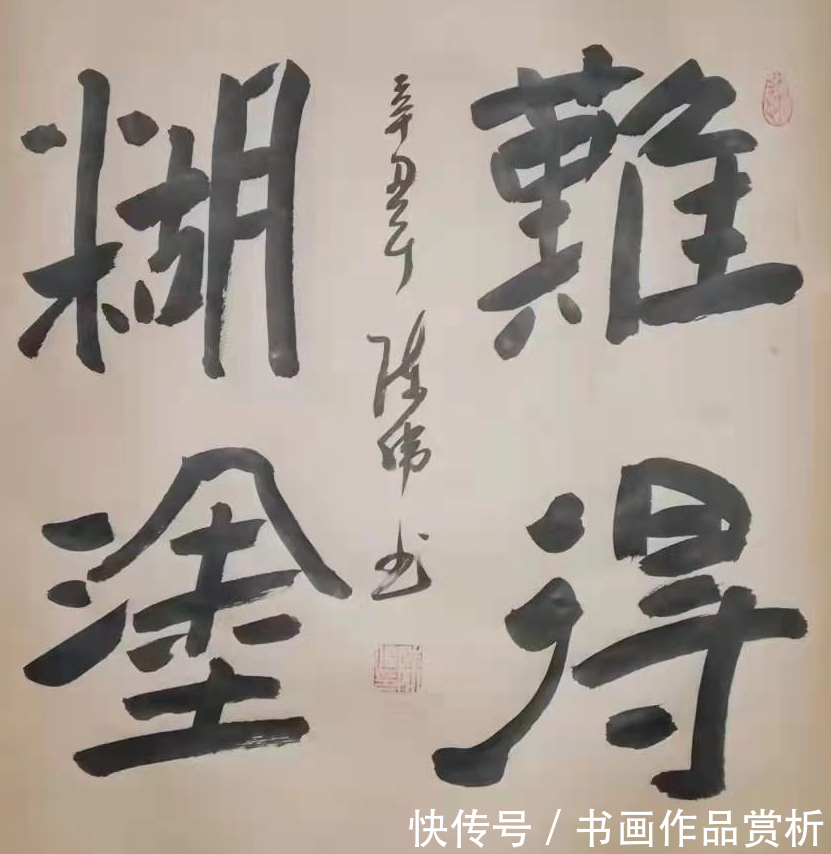 難得
糊塗
辛丑年 陳偉书
快传号 / 书画作品赏析